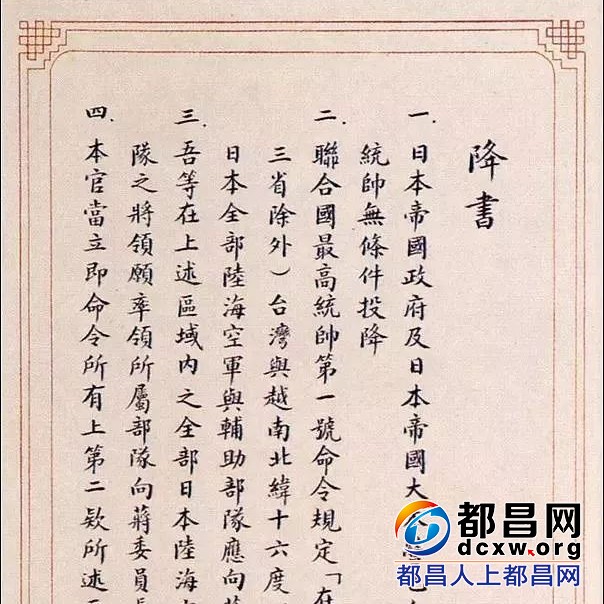 降書
一.日本帝國政府及日本帝國大
統帥無條件投降
二.聯合國最高統帥第一號命令規定「在
三省除外)台灣與越南北緯十六度
日本全部陸海空軍與輔助部隊應向蔣
三.吾等在上述區域內之全部日本陸海
隊之將領願率領所屬部隊向蔣委員長
四.本官當立即命令所有上第二欵所述
都昌网
dcxw.org
都昌人上都昌网